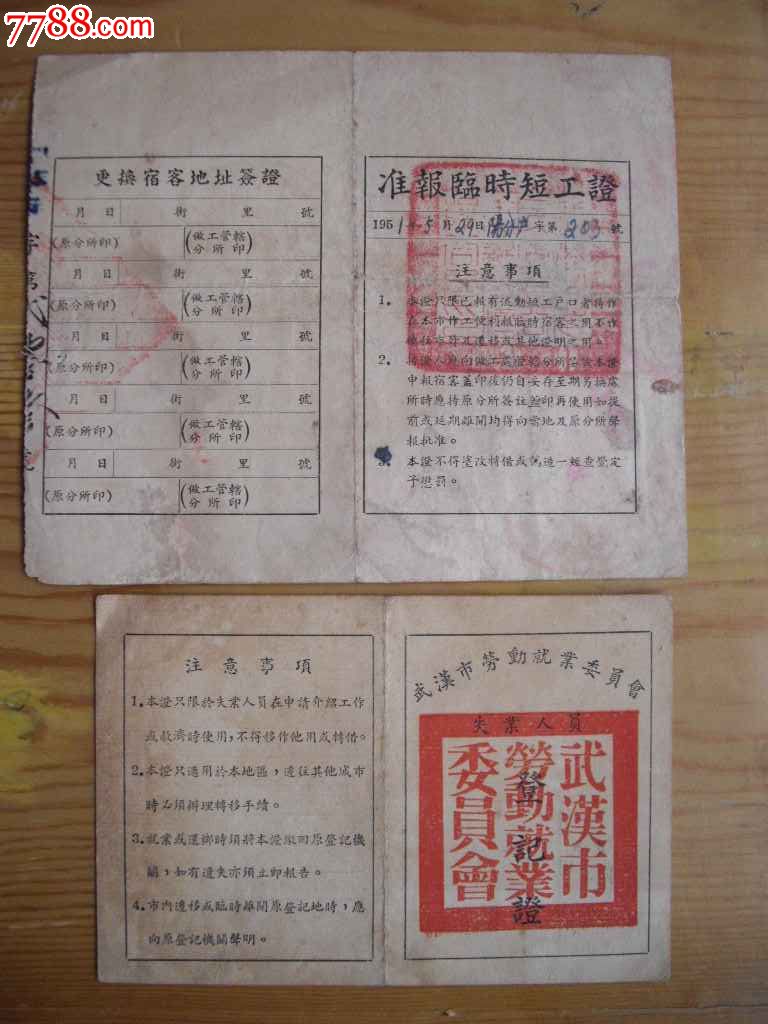 7788.com
中国收藏热线
更换宿客地址簽證
月 日 街 里 號
(原分所印) (做工管轄分所印)
月 日 街 里 號
(原分所印) (做工管轄分所印)
月 日 街 里 號
(原分所印) (做工管轄分所印)
月 日 街 里 號
(原分所印) (做工管轄分所印)
月 日 街 里 號
(原分所印) (做工管轄分所印)
准報臨時短工證
1951年5月29日 字第203號
注意事項
1. 本證只限已報有流動短工戶口者持作
在本市作工便利報臨時宿客之用不作
2.
申報宿客蓋印後仍自妥存至期另換處
所時應持原分所簽註蓋印再使用如從
前或延期離開均得向當地及原分所聲
報批准。
本證不得塗改轉借或偽造一經查登定
予懲罰。
注意事項
1. 本證只限於失業人員在申請介紹工作
或救濟時使用,不得移作他用或轉借。
2. 本證只適用於本地區,遷往其他城市
時必須辦理轉移手續。
3. 就業或還鄉時須將本證繳回原登記機
關,如有遺失亦須立即報告。
4. 市內遷移或臨時離開原登記地時,應
向原登記機關聲明。
武漢市勞動就業委員會
失業人員
登記證
武漢市
勞動就業
委員會